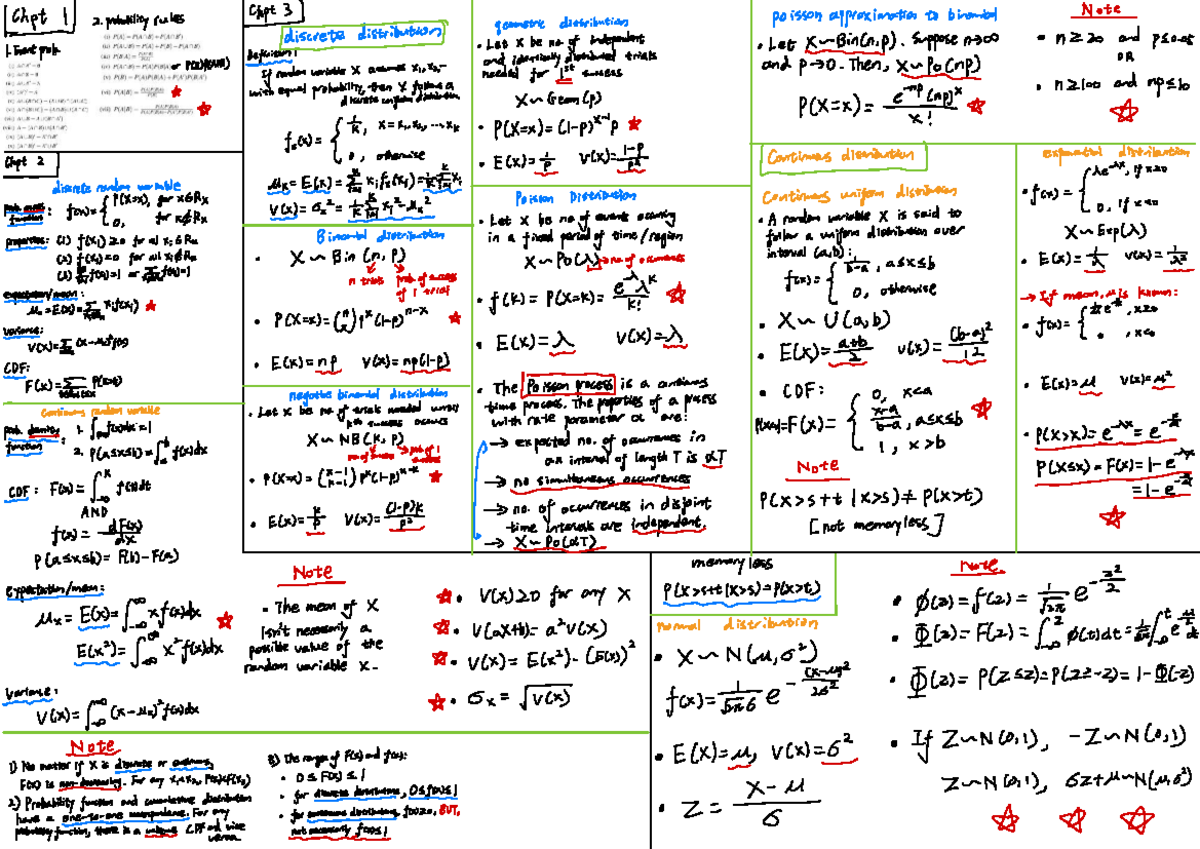 Chpt 1
2. probability rules
1. Event prob.
Chpt 2
discrete random variable
prob. mass function: f(x) = { P(X=x), for x∈Rx
0, for x∉Rx
properties: (1) f(xi) ≥ 0 for all xi ∈ Rx
(2) f(xi) = 0 for all xi ∉ Rx
expectation/mean:
variance:
CDF:
continuous random variable
prob. density function: 1. ∫ f(x)dx = 1
2. P(a≤x≤b) = ∫ₐᵇ f(x)dx
CDF: F(x) = ∫ f(t)dt
AND
f(x) = dF(x)/dx
P(a≤x≤b) = F(b) - F(a)
expectation/mean:
μx = E(x) = ∫_{-∞}^{∞} x f(x)dx
E(x²) = ∫_{-∞}^{∞} x² f(x)dx
Variance:
V(x) = ∫_{-∞}^{∞} (x-μx)² f(x)dx
Note
1) No matter if X is discrete or continuous,
F(x) is non-decreasing. For any
2) Probability function and cumulative distribution
have a one-to-one correspondence. For any
probability function, there is a unique CDF and vice
versa
3) The ranges of F(x) and f(x):
• 0 ≤ F(x) ≤ 1
• for discrete distributions, 0≤f(x)≤1
• for continuous distributions, f(x)≥0, BUT,
not necessarily f(x)≤1
Chpt 3
discrete distribution
definition:
If random variable X assumes x₁, x₂, ...
with equal probability, then X follows a
discrete uniform distribution
fx(x) = { 1/k, x = x₁, x₂, ..., xk
0, otherwise
Binomial distribution
X ~ Bin (n, p)
n trials prob. of success
of 1 trial
• P(X=x) = (n x) pˣ (1-p)ⁿ⁻ˣ
• E(x) = np V(x) = np(1-p)
negative binomial distribution
• Let X be no. of trials needed until
kth success occurs
X ~ NB(k, p)
• P(X=x) = (x-1 k-1) pᵏ (1-p)ˣ⁻ᵏ
• E(x) = k/p V(x) = (1-p)k/p²
geometric distribution
• Let X be no. of independent
and identically distributed trials
needed for 1st success
X ~ Geom(p)
• P(X=x) = (1-p)ˣ⁻¹ p
• E(x) = 1/p V(x) = 1-p/p²
Poisson Distribution
• Let X be no. of events occuring
in a fixed period of time/region
X ~ Po(λ) → no. of occurences
• f(k) = P(X=k) = e^{-λ} λᵏ / k!
• E(x) = λ V(x) = λ
• The Poisson process is a continuous
time process. The properties of a process
with rate parameter α are:
→ expected no. of occurences in
an interval of length T is αT
→ no simultaneous occurrences
→ no. of occurrences in disjoint
time intervals are independent.
→ X ~ Po(αT)
poisson approximation to binomial
• Let X ~ Bin(n, p). Suppose n→∞
and p→0. Then, X ~ Po(np)
P(X=x) = e^{-np} (np)ˣ / x!
Note
• n ≥ 20 and p ≤ 0.05
OR
• n ≥ 100 and np ≤ 10
Continuous distribution
Continuous uniform distribution
• A random variable X is said to
follow a uniform distribution over
interval (a, b):
f(x) = { 1/b-a, a≤x≤b
0, otherwise
• X ~ U(a, b)
• E(x) = a+b/2 V(x) = (b-a)²/12
• CDF:
P(X≤x) = F(x) = { 0, x<a
x-a/b-a, a≤x≤b
1, x>b
Note
P(X>s+t | X>s) ≠ P(X>t)
[not memoryless]
exponential distribution
• f(x) = { λe^{-λx}, if x≥0
0, if x<0
X ~ Exp(λ)
• E(x) = 1/λ V(x) = 1/λ²
→ If mean, μ is known:
• f(x) = { 1/μ e^{-x/μ}, x≥0
0, x<0
• E(x) = μ V(x) = μ²
• P(X>x) = e^{-λx} = e^{-x/μ}
P(X≤x) = F(x) = 1-e^{-λx}
= 1-e^{-x/μ}
Note
• The mean of X
isn't necessarily a
possible value of the
random variable X.
• V(x) ≥ 0 for any X
• V(aX+b) = a² V(x)
• V(x) = E(x²) - (E(x))²
• σx = √V(x)
memoryless
P(X>s+t | X>s) = P(X>t)
normal distribution
• X ~ N(μ, σ²)
f(x) = 1/√2π σ e^{-(x-μ)²/2σ²}
• E(X) = μ, V(x) = σ²
• Z = X-μ/σ
Note
• φ(z) = f(z) = 1/√2π e^{-z²/2}
• Φ(z) = F(z) = ∫_{-∞}^{z} φ(t)dt
• Φ(z) = P(Z≤z) = P(Z≥-z) = 1-Φ(-z)
• If Z ~ N(0,1), -Z ~ N(0,1)
Z ~ N(0,1), σZ+μ ~ N(μ, σ²)